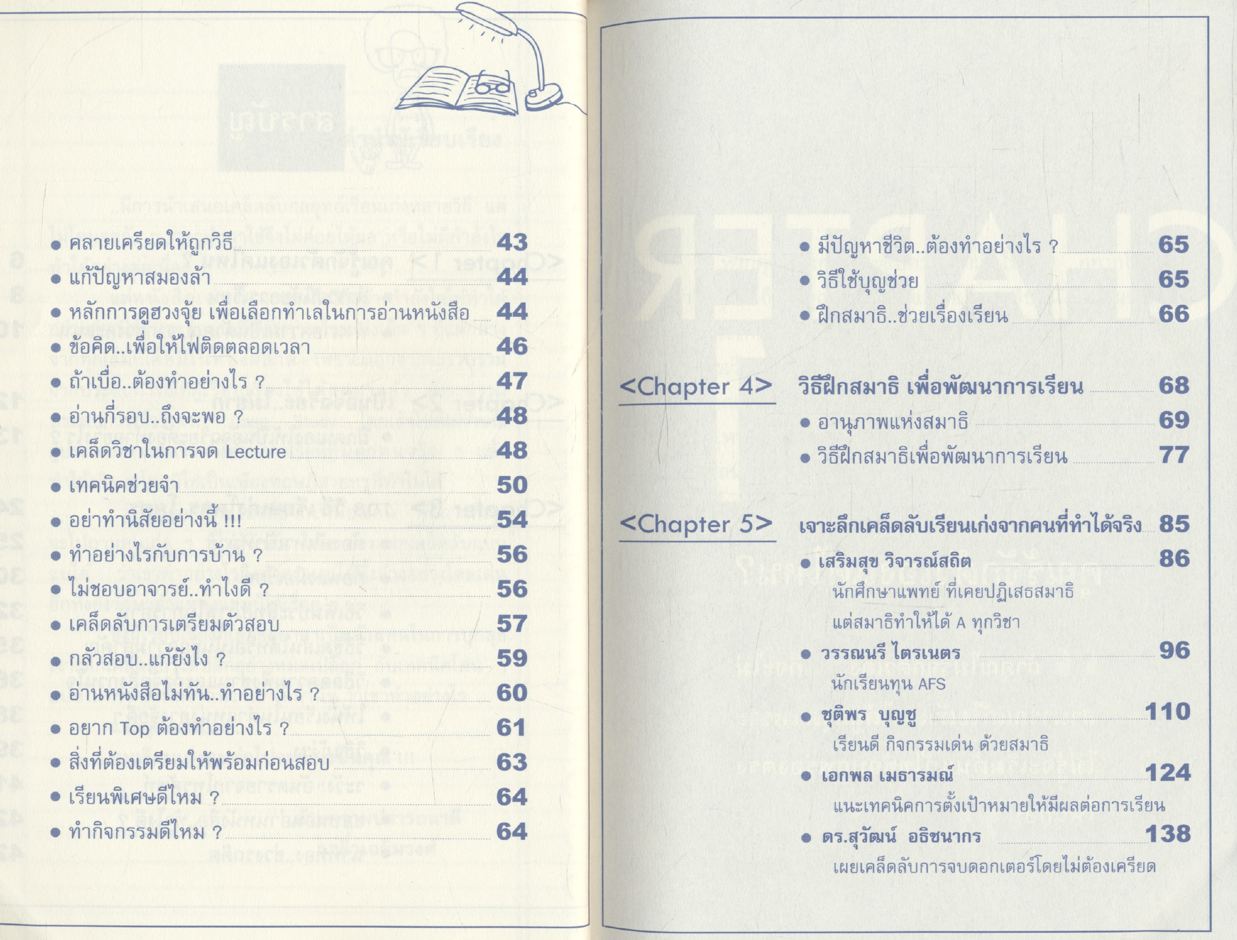 ● คลายเครียดให้ถูกวิธี 43
● แก้ปัญหาสมองล้า 44
● หลักการดูฮวงจุ้ย เพื่อเลือกทำเลในการอ่านหนังสือ 44
● ข้อคิด..เพื่อให้ไฟติดตลอดเวลา 46
● ถ้าเบื่อ..ต้องทำอย่างไร ? 47
● อ่านกี่รอบ..ถึงจะพอ ? 48
● เคล็ดวิชาในการจด Lecture 48
● เทคนิคช่วยจำ 50
● อย่าทำนิสัยอย่างนี้ !!! 54
● ทำอย่างไรกับการบ้าน ? 56
● ไม่ชอบอาจารย์..ทำไงดี ? 56
● เคล็ดลับการเตรียมตัวสอบ 57
● กลัวสอบ..แก้ยังไง ? 59
● อ่านหนังสือไม่ทัน..ทำอย่างไร ? 60
● อยาก Top ต้องทำอย่างไร ? 61
● สิ่งที่ต้องเตรียมให้พร้อมก่อนสอบ 63
● เรียนพิเศษดีไหม ? 64
● ทำกิจกรรมดีไหม ? 64
● มีปัญหาชีวิต..ต้องทำอย่างไร ? 65
● วิธีใช้บุญช่วย 65
● ฝึกสมาธิ..ช่วยเรื่องเรียน 66
<Chapter 4> วิธีฝึกสมาธิ เพื่อพัฒนาการเรียน 68
● อานุภาพแห่งสมาธิ 69
● วิธีฝึกสมาธิเพื่อพัฒนาการเรียน 77
<Chapter 5> เจาะลึกเคล็ดลับเรียนเก่งจากคนที่ทำได้จริง 85
● เสริมสุข วิจารณ์สถิต 86
นักศึกษาแพทย์ ที่เคยปฏิเสธสมาธิ
แต่สมาธิทำให้ได้ A ทุกวิชา
● วรรณนรี ไตรเนตร 96
นักเรียนทุน AFS
● ชุติพร บุญชู 110
เรียนดี กิจกรรมเด่น ด้วยสมาธิ
● เอกพล เมธารมณ์ 124
แนะเทคนิคการตั้งเป้าหมายให้มีผลต่อการเรียน
● ดร.สุวัฒน์ อธิชนากร 138
เผยเคล็ดลับการจบดอกเตอร์โดยไม่ต้องเครียด